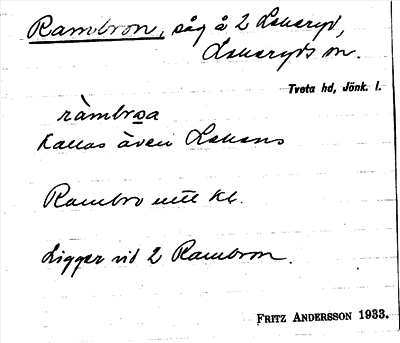 Rambron, såg å 2 Lekaryd,
Lekaryds sn.
Tveta hd, Jönk. l.
ràmbrɷa
Kallas även
Rambro
Ligger vid 2 Rambron.
FRITZ ANDERSSON 1933.